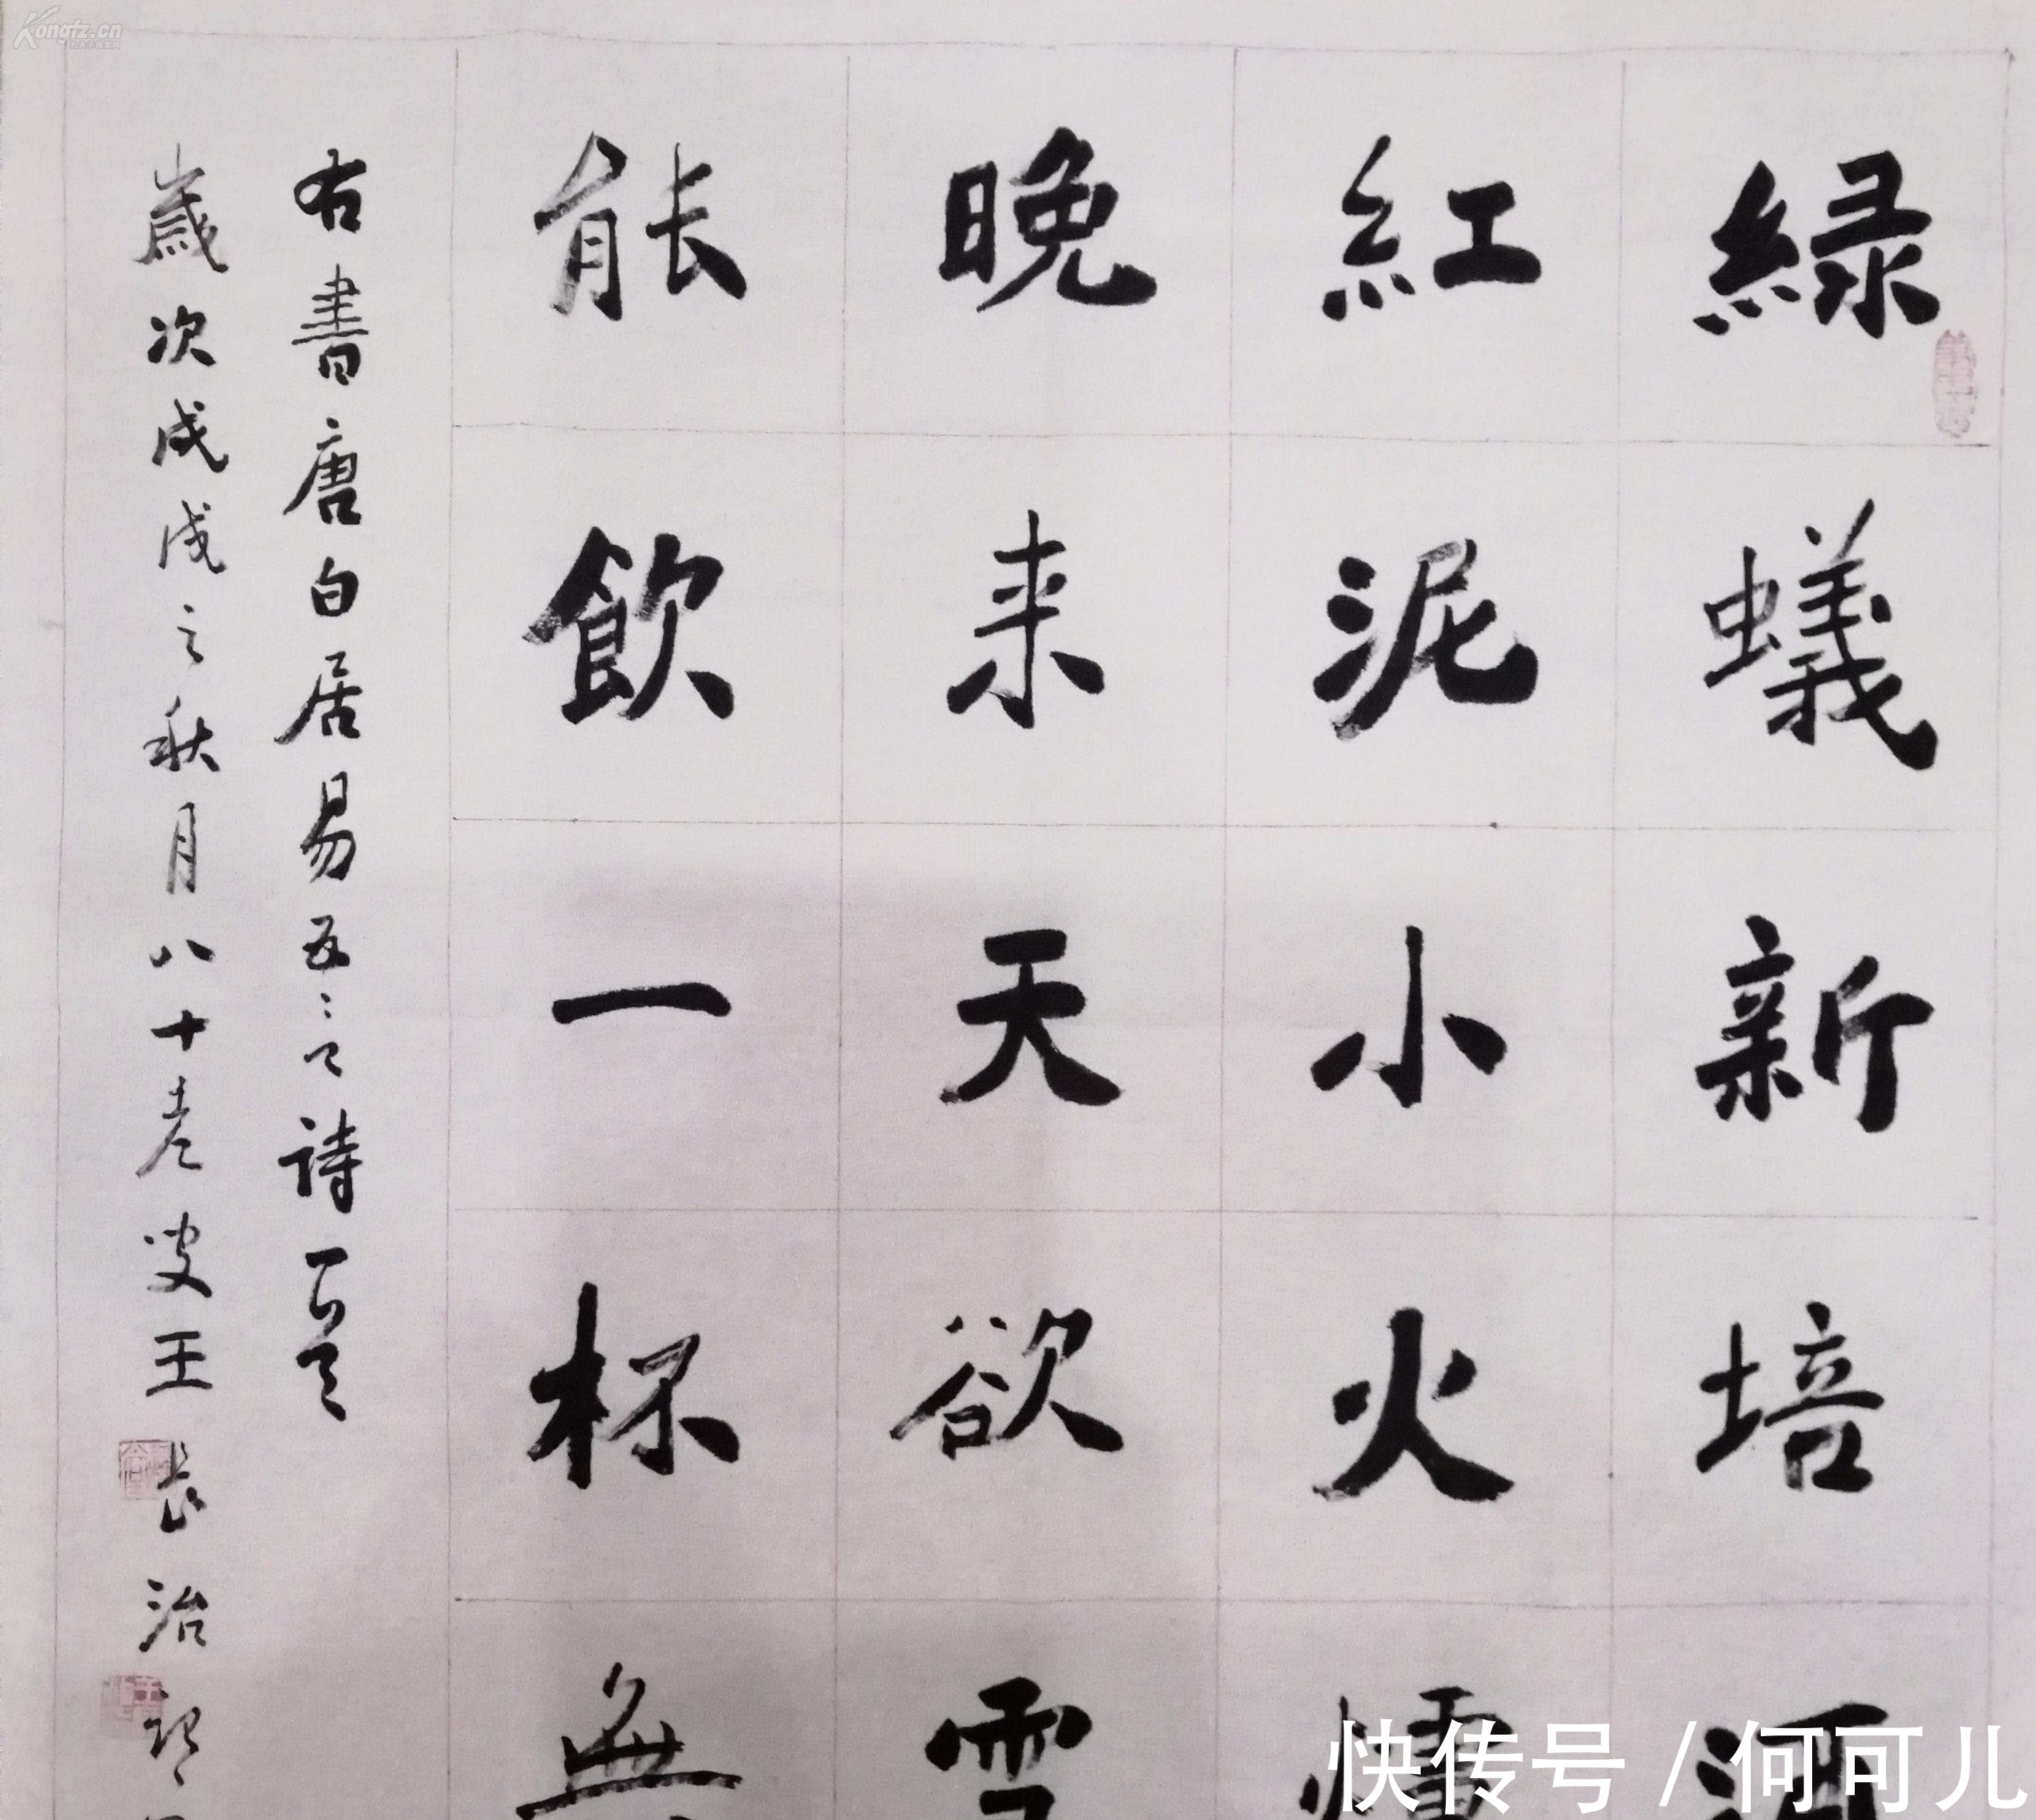 綠蟻新培酒
紅泥小火爐
晚来天欲雪
能飲一杯無
右書唐白居易五言詩一首
歲次戊戌之秋月八十老叟王長治
Kongfz.cn
快传号 / 何可儿